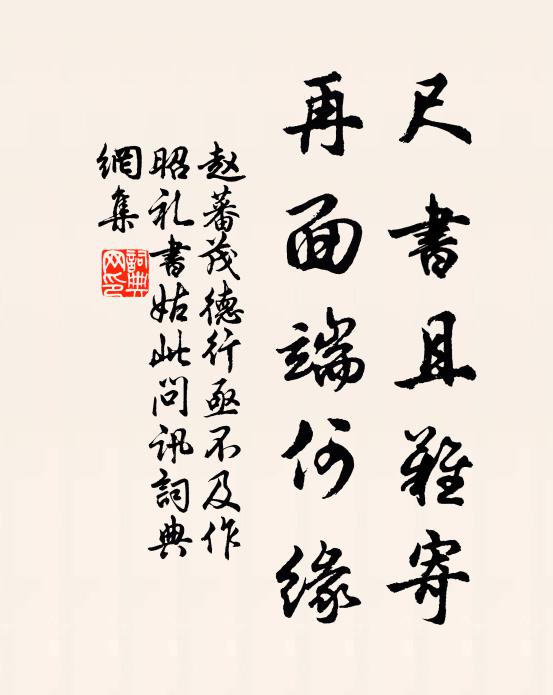 尺書且難寄
再面端何緣
赵蕃茂德行亟不及作
昭礼書姑此問訊詞典
網集
詞典網印